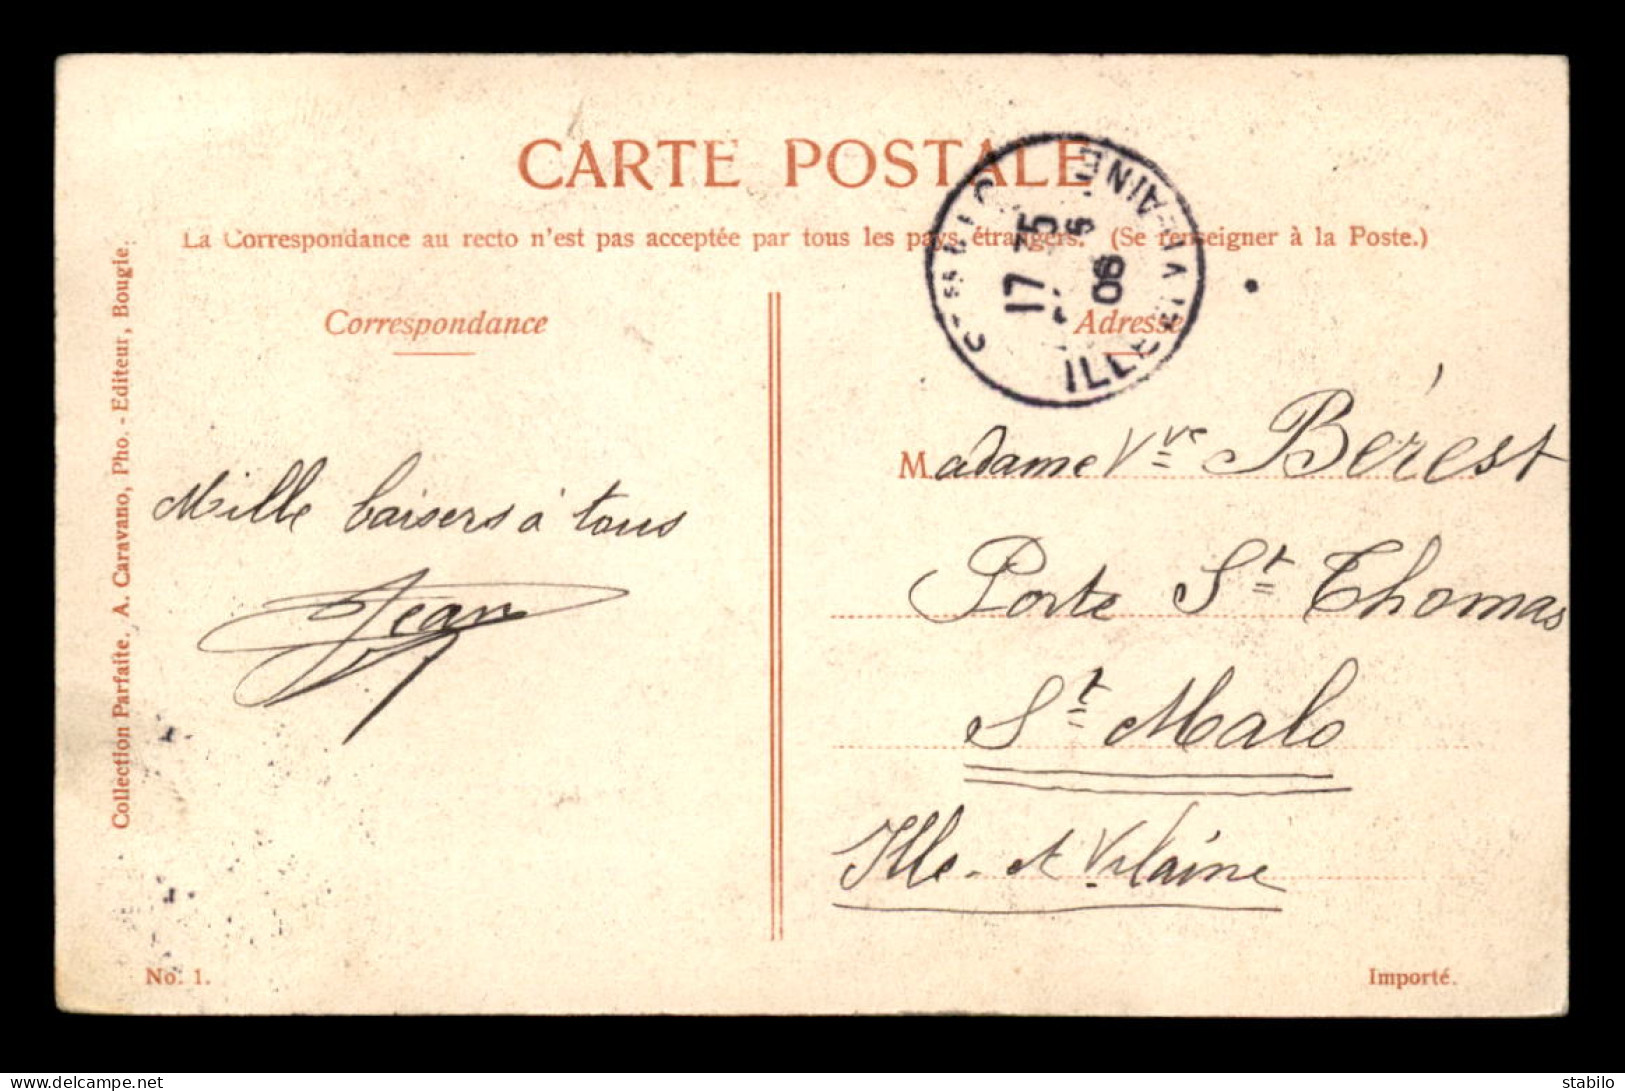 CARTE POSTALE
La Correspondance au recto n'est pas acceptée par tous les pays étrangers. (Se renseigner à la Poste.)
Correspondance
Mille baisers à tous
Jean
Adresse
Madame Vve Bérest
Porte St Thomas
St Malo
Ille-et Vilaine
ILLE
VILAINE
06
Collection Parfaite. A. Caravano, Pho. - Editeur, Bougie.
No. 1.
Importé.
www.delcampe.net
stabilo